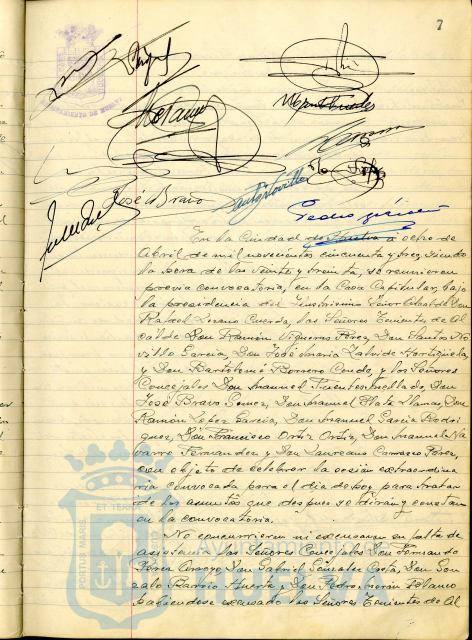 7
AYUNTAMIENTO DE HUELVA
José Bravo
Santos Novillo
Pedro
En la Ciudad de Huelva a ocho de
Abril de mil novecientos cincuenta y tres, siendo
la hora de las veinte y treinta, se reunieron
previa convocatoria, en la Casa Capitular, bajo
la presidencia del Ilustrísimo Señor Alcalde Don
Rafael Lozano Cuerda, los Señores Tenientes de Al
calde Don Ramón Vigueras Pérez, Don Santos No
villo García, Don José María Zalvide Hortigüela
y Don Bartolomé Borrero Conde, y los Señores
Concejales Don Manuel Fuentes, Don
José Bravo Gomez, Don Manuel Plata Llanes, Don
Ramón Lopez García, Don Manuel García Rodri
guez, Don Francisco Ortiz Ortiz, Don Manuel Na
varro Fernandez y Don Laureano Carrasco Pérez,
con objeto de celebrar la sesión extraordina
ria convocada para el día de hoy para tratar
de los asuntos que despues se dirán y constan
en la convocatoria.
No concurrieron ni excusaron su falta de
asistencia los Señores Concejales Don Fernando
Pérez Arroyo, Don Gabriel Gonzalez Costa, Don Gon
zalo Barrio Huerta y Don Pedro Morón Blanco
habiéndose excusado los Señores Tenientes de Al
PORTUS MARIS ET TERRAE
Ayuntamiento de
Huelva